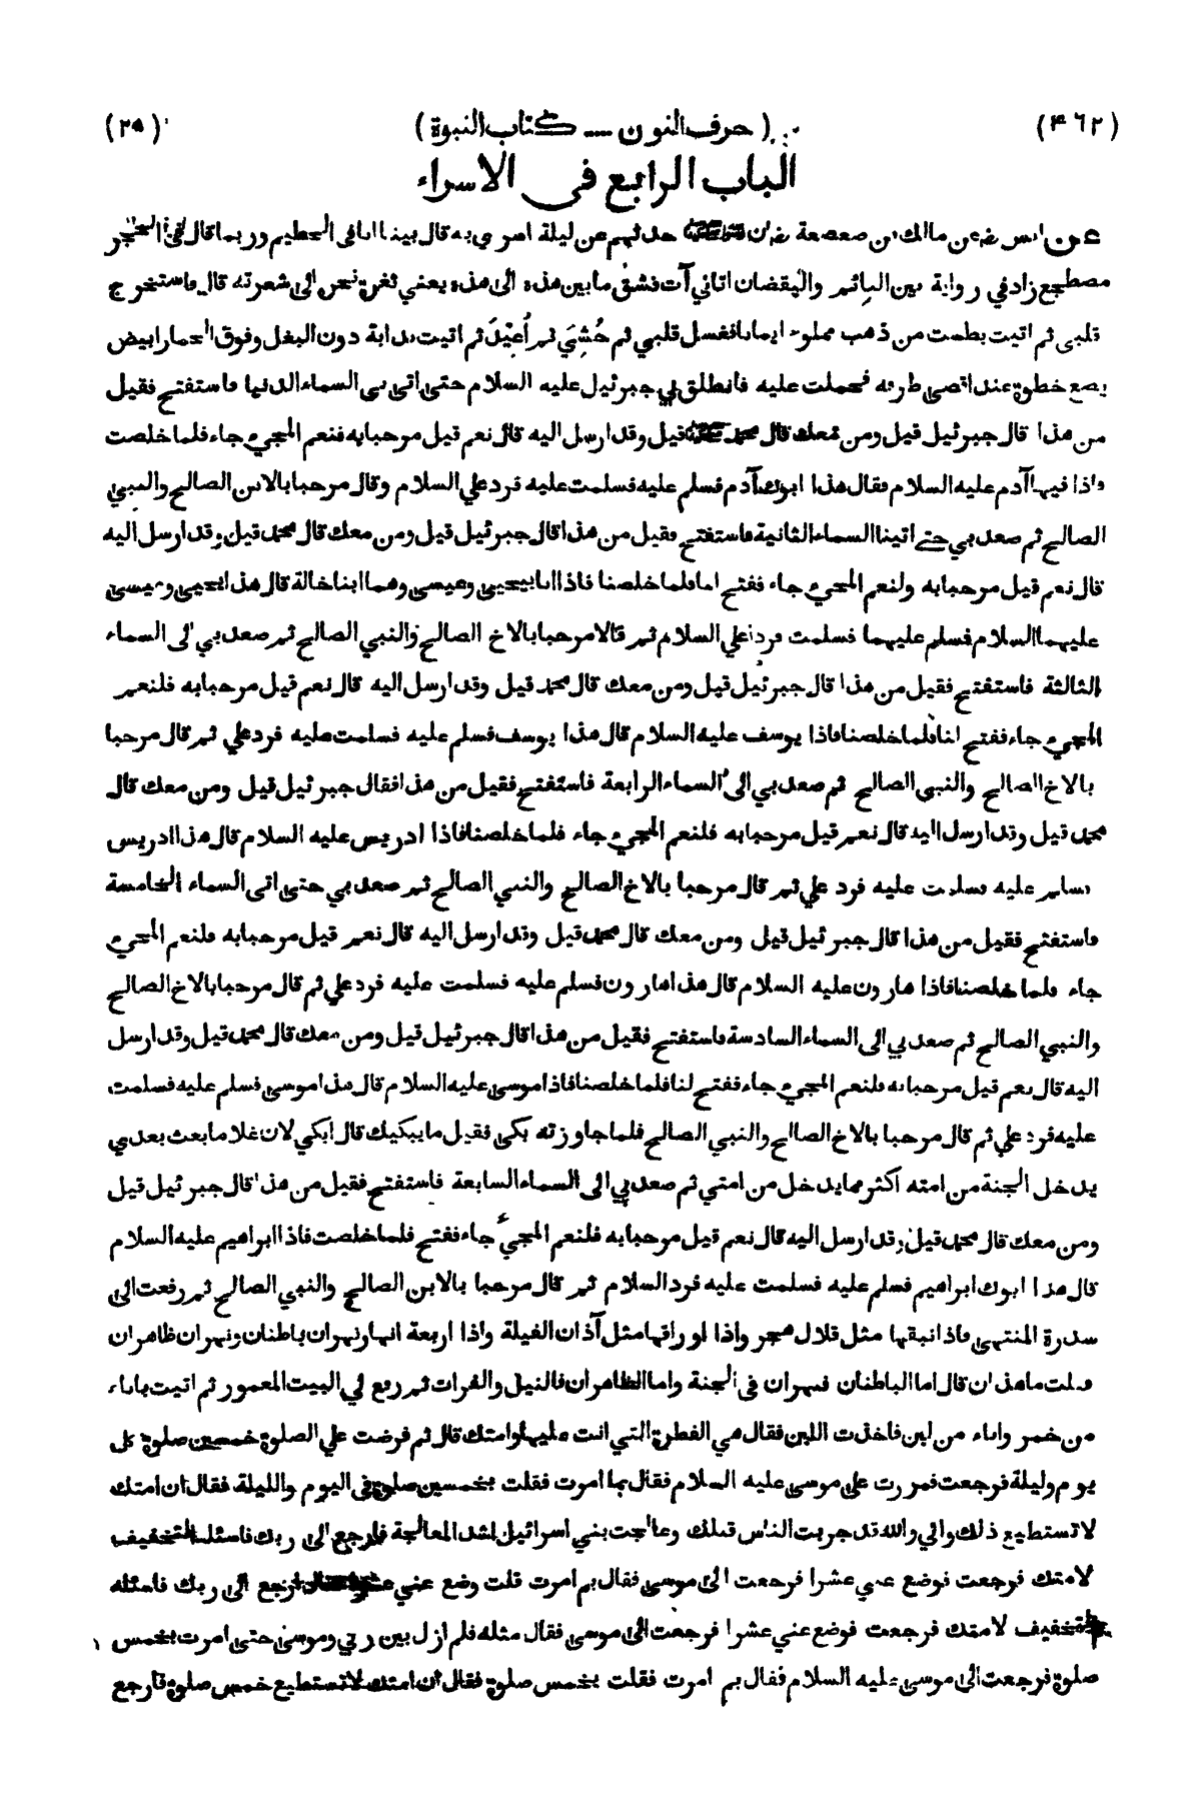 (٤٦٢) (حرف النون — كتاب النبوة) (٢٥)
الباب الرابع في الاسراء
عن انس عن مالك بن صعصعة ان حدثهم عن ليلة اسري به قال بينا انا في الحطيم وربما قال في الحجر
مضطجع زاد في رواية بين النائم واليقضان اتاني آت فشق ما بين هذه الى هذه يعني ثغرة نحر الى شعرته قال فاستخرج
قلبي ثم اتيت بطست من ذهب مملوء ايمانا فغسل قلبي ثم حُشِيَ ثم أُعِيْدَ ثم اتيت بدابة دون البغل وفوق الحمار ابيض
يضع خطوة عند اقصى طرفه فحملت عليه فانطلق بي جبرئيل عليه السلام حتى اتى بي السماء الدنيا فاستفتح فقيل
من هذا قال جبرئيل قيل ومن معك قال محمد قيل وقد ارسل اليه قال نعم قيل مرحبا به فنعم المجيء جاء فلما خلصت
فاذا فيها آدم عليه السلام فقال هذا ابوك آدم فسلم عليه فسلمت عليه فرد علي السلام وقال مرحبا بالابن الصالح والنبي
الصالح ثم صعد بي حتى اتينا السماء الثانية فاستفتح فقيل من هذا قال جبرئيل قيل ومن معك قال محمد قيل وقد ارسل اليه
قال نعم قيل مرحبا به ولنعم المجيء جاء ففتح لنا فلما خلصنا فاذا انا بيحيى وعيسى وهما ابنا خالة قال هذا يحيى وعيسى
عليهما السلام فسلم عليهما فسلمت فردا علي السلام ثم قالا مرحبا بالاخ الصالح والنبي الصالح ثم صعد بي الى السماء
الثالثة فاستفتح فقيل من هذا قال جبرئيل قيل ومن معك قال محمد قيل وقد ارسل اليه قال نعم قيل مرحبا به فلنعم
المجيء جاء ففتح لنا فلما خلصنا فاذا يوسف عليه السلام قال هذا يوسف فسلم عليه فسلمت عليه فرد علي ثم قال مرحبا
بالاخ الصالح والنبي الصالح ثم صعد بي الى السماء الرابعة فاستفتح فقيل من هذا فقال جبرئيل قيل ومن معك قال
محمد قيل وقد ارسل اليه قال نعم قيل مرحبا به فلنعم المجيء جاء فلما خلصنا فاذا ادريس عليه السلام قال هذا ادريس
فسلم عليه فسلمت عليه فرد علي ثم قال مرحبا بالاخ الصالح والنبي الصالح ثم صعد بي حتى اتى السماء الخامسة
فاستفتح فقيل من هذا قال جبرئيل قيل ومن معك قال محمد قيل وقد ارسل اليه قال نعم قيل مرحبا به فلنعم المجيء
جاء فلما خلصنا فاذا هارون عليه السلام قال هذا هارون فسلم عليه فسلمت عليه فرد علي ثم قال مرحبا بالاخ الصالح
والنبي الصالح ثم صعد بي الى السماء السادسة فاستفتح فقيل من هذا قال جبرئيل قيل ومن معك قال محمد قيل وقد ارسل
اليه قال نعم قيل مرحبا به فلنعم المجيء جاء ففتح لنا فلما خلصنا فاذا موسى عليه السلام قال هذا موسى فسلم عليه فسلمت
عليه فرد علي ثم قال مرحبا بالاخ الصالح والنبي الصالح فلما جاوزته بكى فقيل ما يبكيك قال ابكي لان غلاما بعث بعدي
يدخل الجنة من امته اكثر مما يدخل من امتي ثم صعد بي الى السماء السابعة فاستفتح فقيل من هذا قال جبرئيل قيل
ومن معك قال محمد قيل وقد ارسل اليه قال نعم قيل مرحبا به فلنعم المجيء جاء ففتح فلما خلصت فاذا ابراهيم عليه السلام
قال هذا ابوك ابراهيم فسلم عليه فسلمت عليه فرد السلام ثم قال مرحبا بالابن الصالح والنبي الصالح ثم رفعت الى
سدرة المنتهى فاذا نبقها مثل قلال هجر واذا اوراقها مثل آذان الفيلة واذا اربعة انهار نهران باطنان ونهران ظاهران
قلت ما هذان قال اما الباطنان فنهران في الجنة واما الظاهران فالنيل والفرات ثم رفع لي البيت المعمور ثم اتيت باناء
من خمر واناء من لبن فاخذت اللبن فقال هي الفطرة التي انت عليها وامتك قال ثم فرضت علي الصلوة خمسين صلوة كل
يوم وليلة فرجعت فمررت على موسى عليه السلام فقال بما امرت فقلت بخمسين صلوة في اليوم والليلة فقال ان امتك
لا تستطيع ذلك واني والله قد جربت الناس قبلك وعالجت بني اسرائيل اشد المعالجة فارجع الى ربك فاسئله التخفيف
لامتك فرجعت فوضع عني عشرا فرجعت الى موسى فقال بم امرت قلت وضع عني عشرا فقال ارجع الى ربك فاسئله
التخفيف لامتك فرجعت فوضع عني عشرا فرجعت الى موسى فقال مثله فلم ازل بين ربي وموسى حتى امرت بخمس
صلوة فرجعت الى موسى عليه السلام فقال بم امرت فقلت بخمس صلوة فقال ان امتك لا تستطيع خمس صلوة فارجع